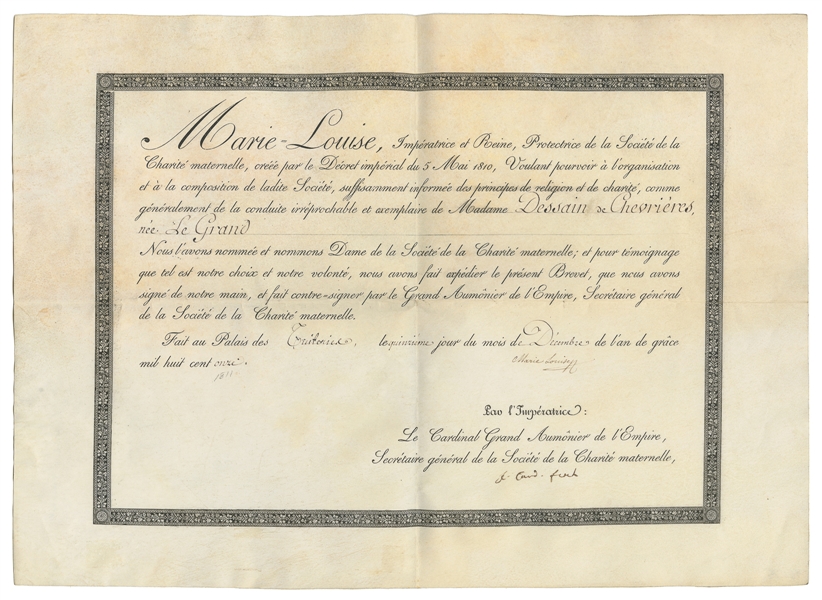 Marie-Louise, Impératrice et Reine, Protectrice de la Société de la
Charité maternelle, créée par le Décret impérial du 5 Mai 1810, Voulant pourvoir à l'organisation
et à la composition de ladite Société, suffisamment informée des principes de religion et de charité, comme
généralement de la conduite irréprochable et exemplaire de Madame Dessain de Chevrières,
née Le Grand
Nous l'avons nommée et nommons Dame de la Société de la Charité maternelle; et pour témoignage
que tel est notre choix et notre volonté, nous avons fait expédier le présent Brevet, que nous avons
signé de notre main, et fait contre-signer par le Grand Aumônier de l'Empire, Secrétaire général
de la Société de la Charité maternelle.
Fait au Palais des Tuileries, le quinzième jour du mois de Décembre de l'an de grâce
mil huit cent onze.
1811
Marie Louise
Par l'Impératrice:
Le Cardinal Grand Aumônier de l'Empire,
Secrétaire général de la Société de la Charité maternelle,
Card. Fesch